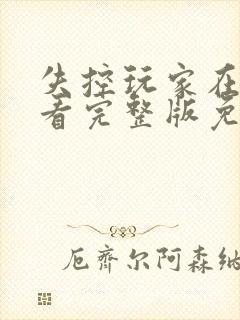 失控玩家在
看完整版免
厄齐尔阿森纳